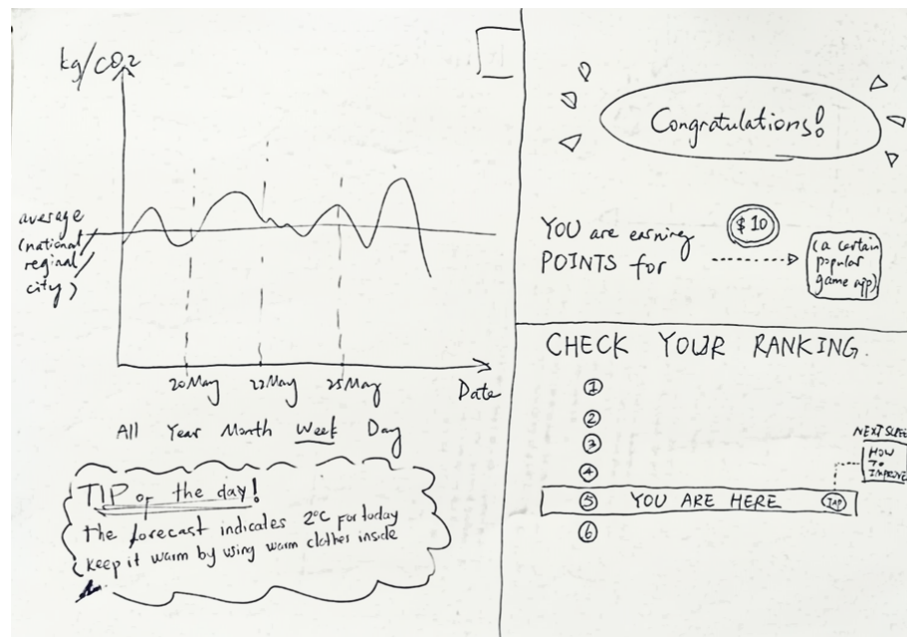 kg/CO2
average
(national
reginal
city)
20 May
22 May
25 May
Date
All Year Month Week Day
TIP of the day!
the forecast indicates 2°C for today
keep it warm by using warm clothes inside
Congratulations!
YOU are earning
POINTS for
$10
(a certain
popular
game app)
CHECK YOUR RANKING.
1
2
3
4
5 YOU ARE HERE
6
NEXT
HOW
TO
IMPROVE